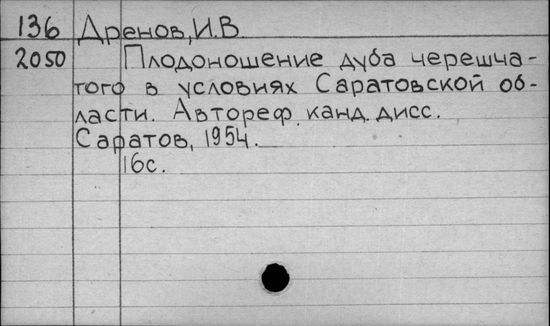 136 Дренов, И.В.
2050 Плодоношение дуба черешча-
того в условиях Саратовской об-
ласти. Автореф. канд. дисс.
Саратов, 1954.
16с.